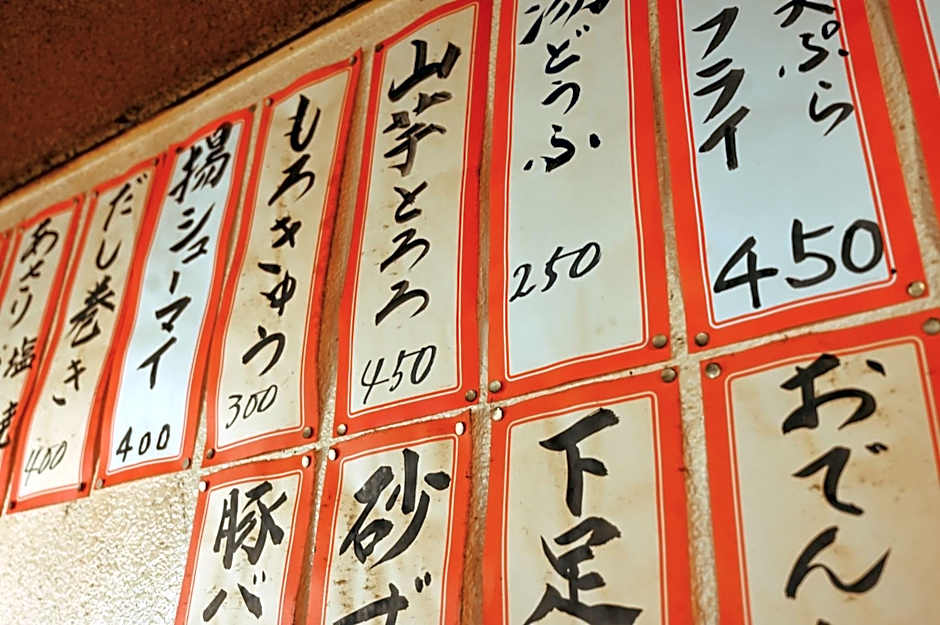 天ぷら
フライ
450
湯どうふ
250
山芋とろろ
450
もろきゅう
300
揚シューマイ
400
だし巻き
400
あさり塩
おでん
下足
砂ズ
豚バ